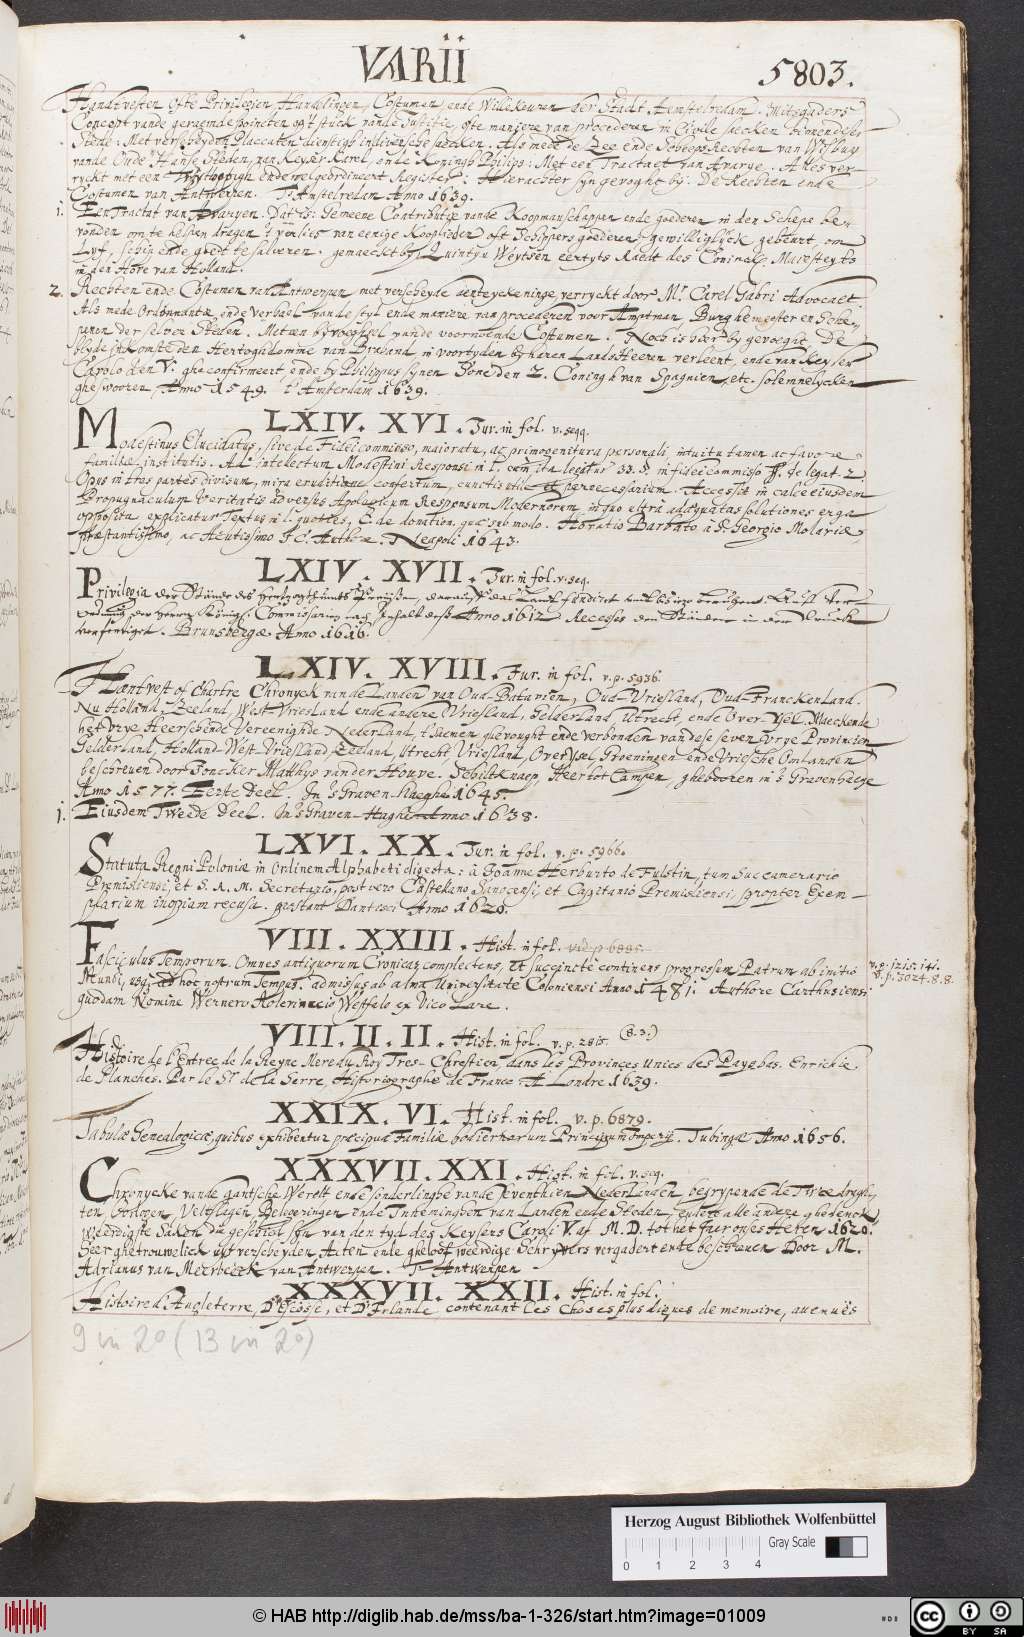 VARII
5803.
Handtvesten Ofte Privilegien, Handelingen, Costumen, ende Willekeuren der Stadt Aemstelredam. Mitsgaders
Concept vande geraemde poincten op 't stuck vande Justitie, ofte maniere van procederen in Civile saecken binnen deser
Stede: Met verscheyden Placcaten dienstigh in diversche saecken. Als mede de Zee ende Scheeps Rechten van Wisbuy
vande Oude Hanse Steden, van Keyser Karel, ende Koningh Philips: Met een Tractaet van Avarye. Alles ver-
ryckt met een ende welgeordineert Register: Hierachter syn gevoeght bij: De Rechten ende
Costumen van Antwerpen. T' Amstelredam Anno 1639.
1. Een Tractat van Avaryen. Dat is: Gemeene Contributie vande Koopmanschappen ende goederen in den Schepe be-
vonden, om te helpen dragen 't verlies van eenige Kooplieden oft Schippers goederen: gewilliglyck gebeurt, om
Lyf, Schip ende goedt te salveren. gemaeckt by Quintyn Weytsen eertyts Raedt des Coninck. Maiesteyts
in den Hove van Holland.
2. Rechten ende Costumen van Antwerpen, met verscheyde aenteyckeninge, verryckt door Mr Carel Gabri Advocaet.
Als mede Ordonnantie, ende verhael van de styl ende maniere van procederen voor Amptman, Burghemeester en Sche-
penen der selver Steden. Metten byvoeghsel vande voornoemde Costumen. Noch is hier by gevoeght De
blyde inkomste den Hertoghdomme van Braband, in voortyden by haren Landsheeren verleent, ende van Keyser
Carolo den V. gheconfirmeert ende by Philippus synen Sone den 2. Coningh van Spagnien, etc. solemnelycken
gheswooren, Anno 1549. t' Amsterdam 1639.
LXIV. XVI. Jur. in fol. v. seqq.
Modestinus Elucidatus, sive de Fideicommisso, maioratu, ac primogenitura personali, intuitu tamen ac favore
familiae institutis. Ad intellectum Modestini Responsi in l. cum ita legatur 32. §. in fideicommisso ff. de legat. 2.
Opus in tres partes divisum, mira eruditione confertum, cunctis utile et pernecessarium. Accessit in calce eiusdem
Propugnaculum Veritatis adversus Apologicum Responsum Modernorum, in quo ultra adaequatas solutiones erga
opposita, explicatur Textus in l. quoties, C. de donation. quae sub modo. Horatio Barbato à S. Georgio Molariae,
praestantissimo, ac Acutissimo J. C. Authore. Neapoli 1643.
LXIV. XVII. Jur. in fol. v. seq.
Privilegia der Stände des Hertzogthumbs Preussen, darauff das Landt fundiret
der Herren Königl. Commissarien nach Inhalt dess Anno 1612 Recesses den Ständen in den Druck
verfertiget. Brunsbergae Anno 1616.
LXIV. XVIII. Jur. in fol. v. p. 5936.
Hantvest of Chartre Chronyck van de Landen van Oud-Batavien, Oud-Vriesland, Oud-Francken Land.
Nu Holland, Zeeland, West-Vriesland ende andere Vriesland, Gelderland, Utrecht, ende Over-Ysel. Maeckende
het vrye Heerschende Vereenighde Nederland, t'saemen gevought ende verbonden van dese seven vrye Provincien
Gelderland, Holland-West-Vriesland, Zeeland, Utrecht, Vriesland, Over Ysel, Groeningen ende Vriesche Omlanden
beschreven door Joncker Matthys van der Houve. Schiltknaep, Heer tot Campen, ghebooren in 's Gravenhaege
Anno 1577. Eerte Deel. In 's Graven-Haeghe 1645.
1. Eiusdem Tweede Deel. In 's Graven-Haghe Anno 1638.
LXVI. XX. Jur. in fol. v. p. 5966.
Statuta Regni Poloniae in Ordinem Alphabeti digesta: à Joanne Herburto de Fulstin, tum Succamerario
Premisliensi, et S. R. M. Secretario, post vero Castellano Sanocensi, et Capitanio Premisliensi, propter Exem-
plarium inopiam recusa. prostant Dantisci Anno 1620.
VIII. XXIII. Hist. in fol. vid. p. 6885.
Fasciculus Temporum. Omnes antiquorum Cronicas complectens, et succinctè continens progressum Patrum ab initio
Mundi, usque ad hoc nostrum Tempus. admissus ab alma Universitate Coloniensi Anno 1481. Authore Carthusiensi
quodam Nomine Wernero Rolevinnccio Westfelo ex Vico Lare.
v. p. 1215. 141.
v. p. 3024. 8. 8.
VIII. II. II. Hist. in fol. v. p. 2815. (8. 3.)
Histoire de l'Entree de la Reyne Mere du Roy Tres-Chrestien, dans les Provinces Unies des Payebas. Enrichie
de Planches. Par le Sr. de la Serre, Historiographe de France. A Londre 1639.
XXIX. VI. Hist. in fol. v. p. 6879.
Tabulae Genealogicae, quibus exhibentur praecipuae Familiae hodiernarum Principum Imperii. Tubingae Anno 1656.
XXXVII. XXI. Hist. in fol. v. seq.
Chronycke vande gantsche Werelt ende sonderlinghe vande Seventhien Nederlanden, begrypende de Twee dragh-
ten, Oorlogen, Veltslagen, Belegeringen ende Innemingen van Landen ende Steden, eyntlyck alle andere ghedenck
weerdighste Saken die geschiet syn van den tyd des Keysers Caroli V. A.o M. D. tot het Jaer onses Heren 1620.
Seer ghetrouwelick uyt verscheyden Auten ende gheloofweerdige Schryvers vergadert ende beschreven Door M.
Adrianus van Meerbeeck van Antwerpen. T' Antwerpen
XXXVII. XXII. Hist. in fol.
Histoire d'Angleterre, D'Escosse, et D'Irlande, contenant les Choses plus dignes de memoire, avenuës
9 in 2° (13 in 2°)
Herzog August Bibliothek Wolfenbüttel
Gray Scale
0 1 2 3 4
© HAB http://diglib.hab.de/mss/ba-1-326/start.htm?image=01009
CC BY SA